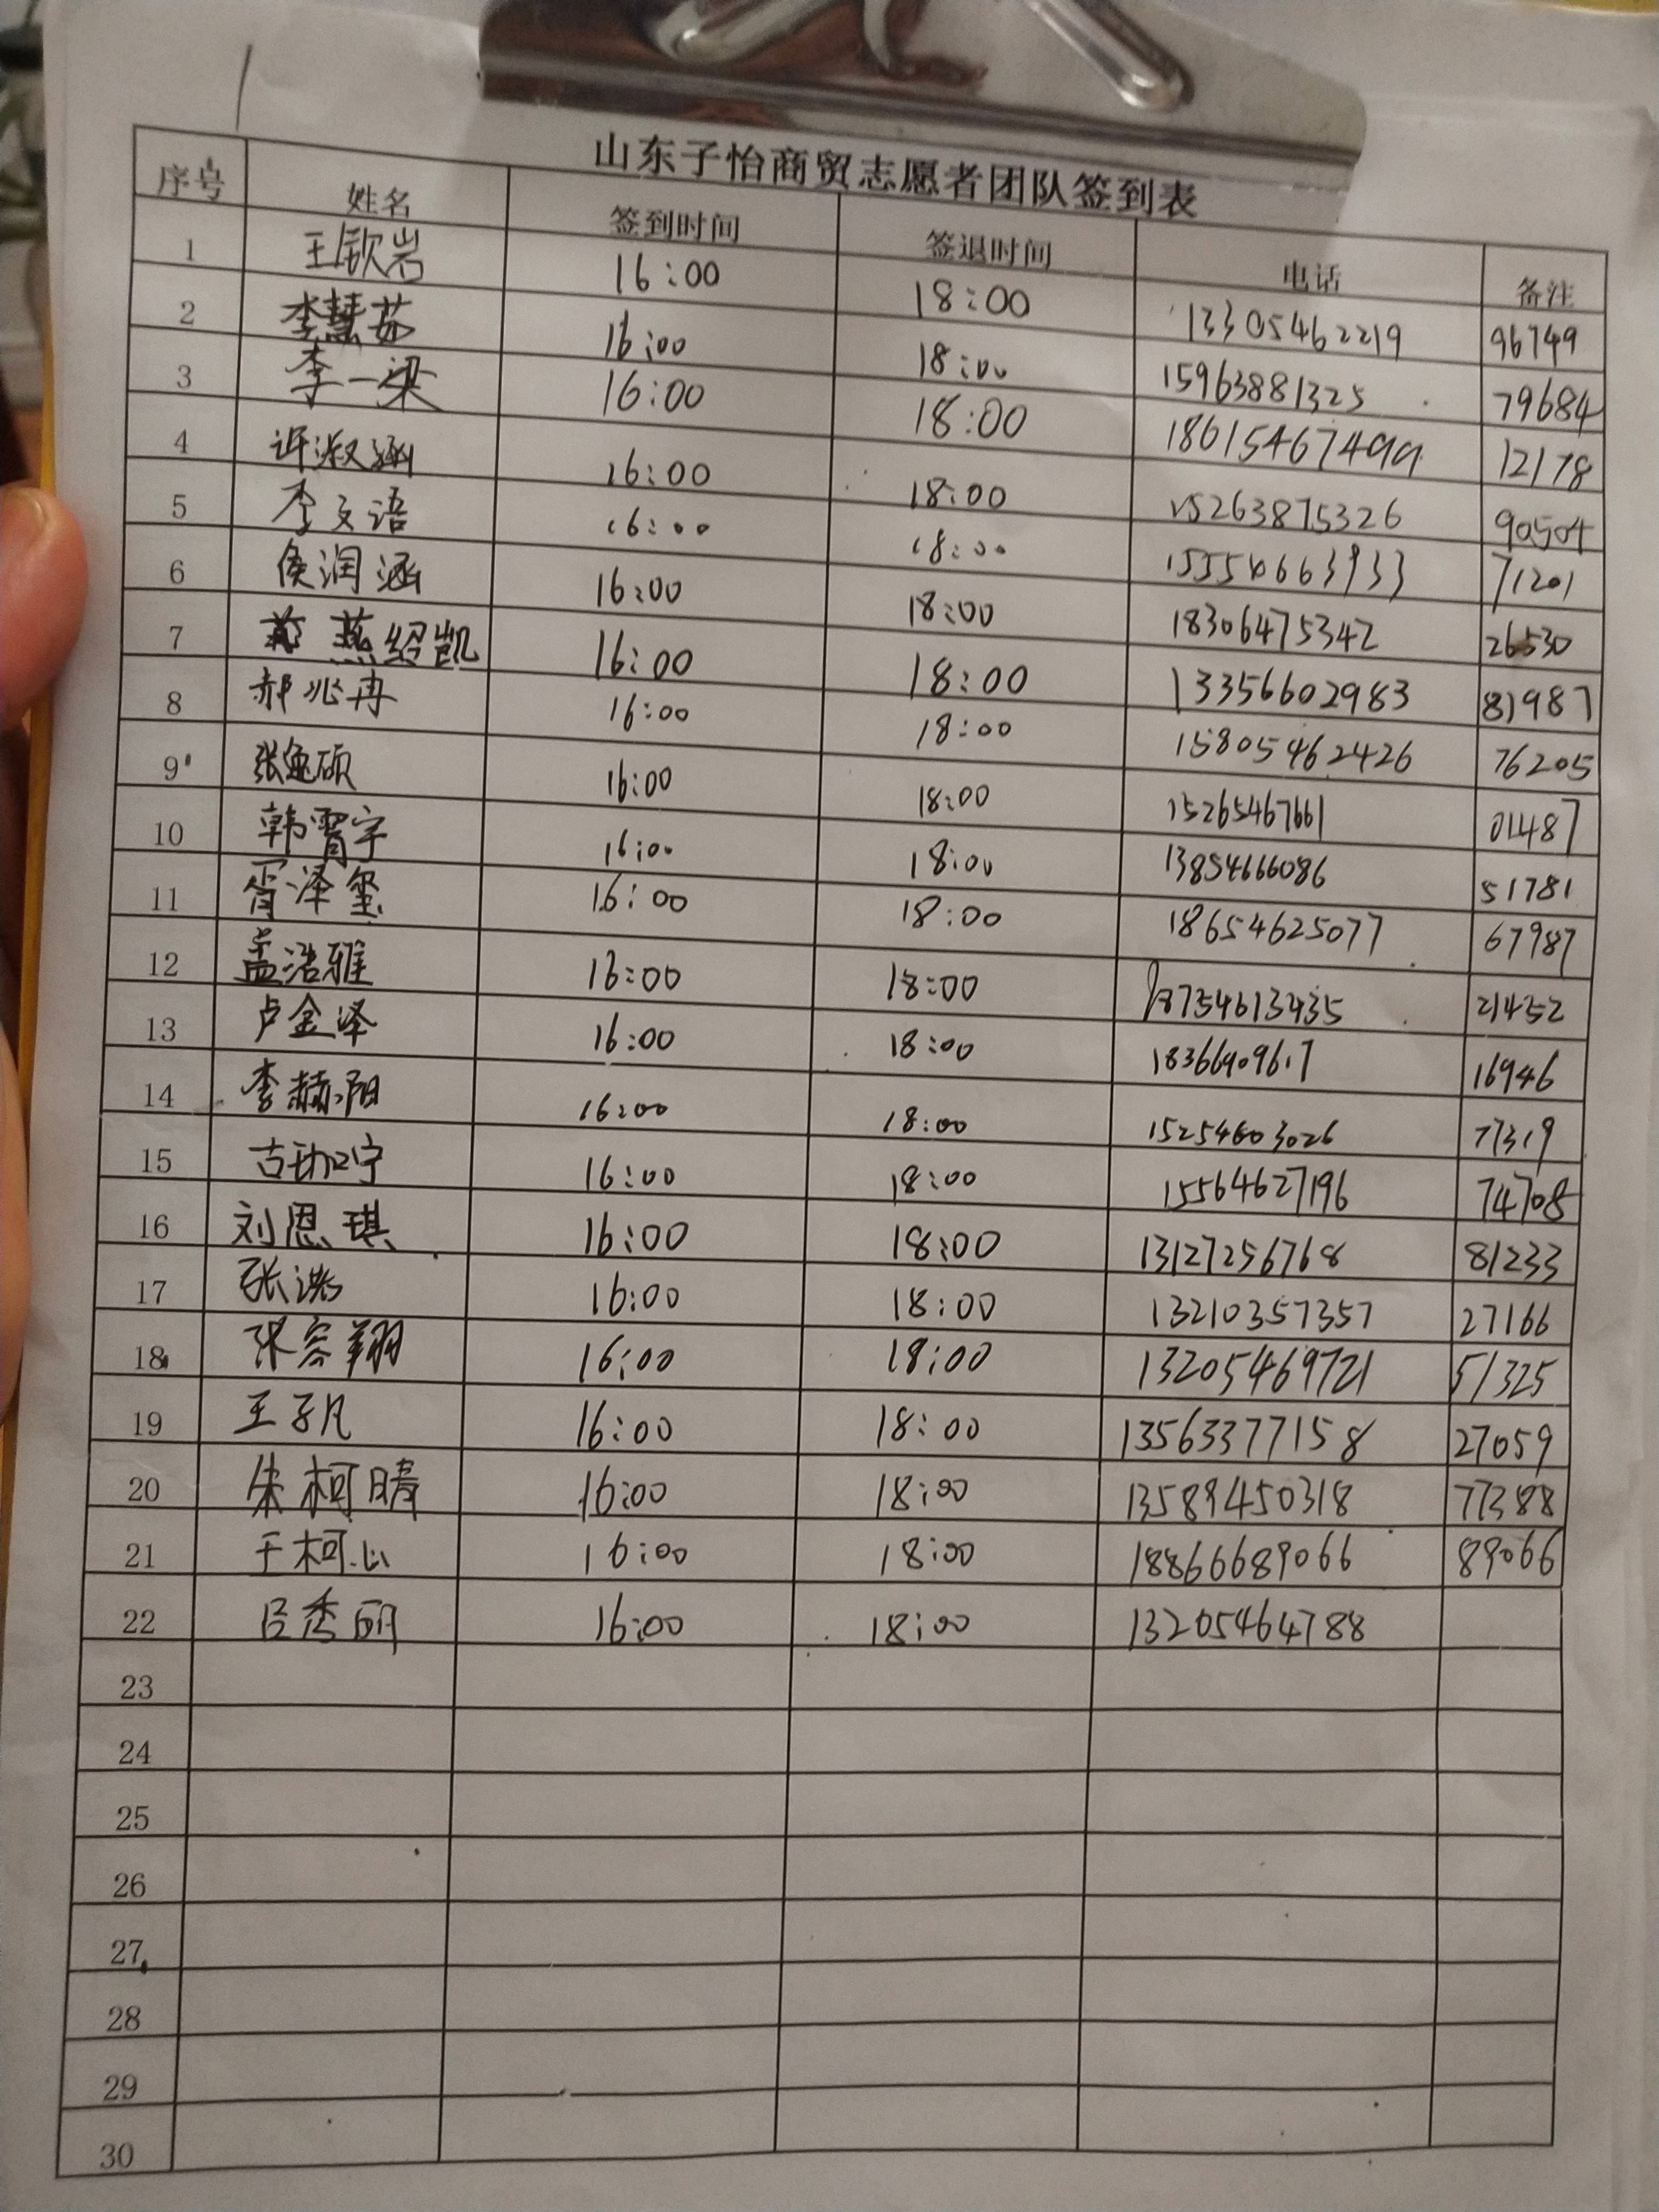 山东子怡商贸志愿者团队签到表
序号 姓名 签到时间 签退时间 电话 备注
1 王钦岩 16:00 18:00 13305462219 96749
2 李慧茹 16:00 18:00 15963881325 79684
3 李一梁 16:00 18:00 18615467499 12178
4 许淑涵 16:00 18:00 15263875326 90504
5 李文语 16:00 18:00 15550663933 71201
6 侯润涵 16:00 18:00 18306475342 26530
7 燕绍凯 16:00 18:00 13356602983 81987
8 郝兆冉 16:00 18:00 15805462426 76205
9 张逸硕 16:00 18:00 15265467661 01487
10 韩霄宇 16:00 18:00 13854666086 51781
11 胥泽玺 16:00 18:00 18654625077 67987
12 孟浩雅 16:00 18:00 18754613435 21452
13 卢金泽 16:00 18:00 18366909617 16946
14 李赫阳 16:00 18:00 15254603026 77319
15 古珈宁 16:00 18:00 15564627196 74708
16 刘恩琪 16:00 18:00 13127256768 81233
17 张洪 16:00 18:00 13210357357 27166
18 张容翔 16:00 18:00 13205469721 51325
19 王子凡 16:00 18:00 13563377158 27059
20 朱柯晴 16:00 18:00 13589450318 77388
21 王柯心 16:00 18:00 18866689066 89066
22 吕秀丽 16:00 18:00 13205464788
23
24
25
26
27
28
29
30